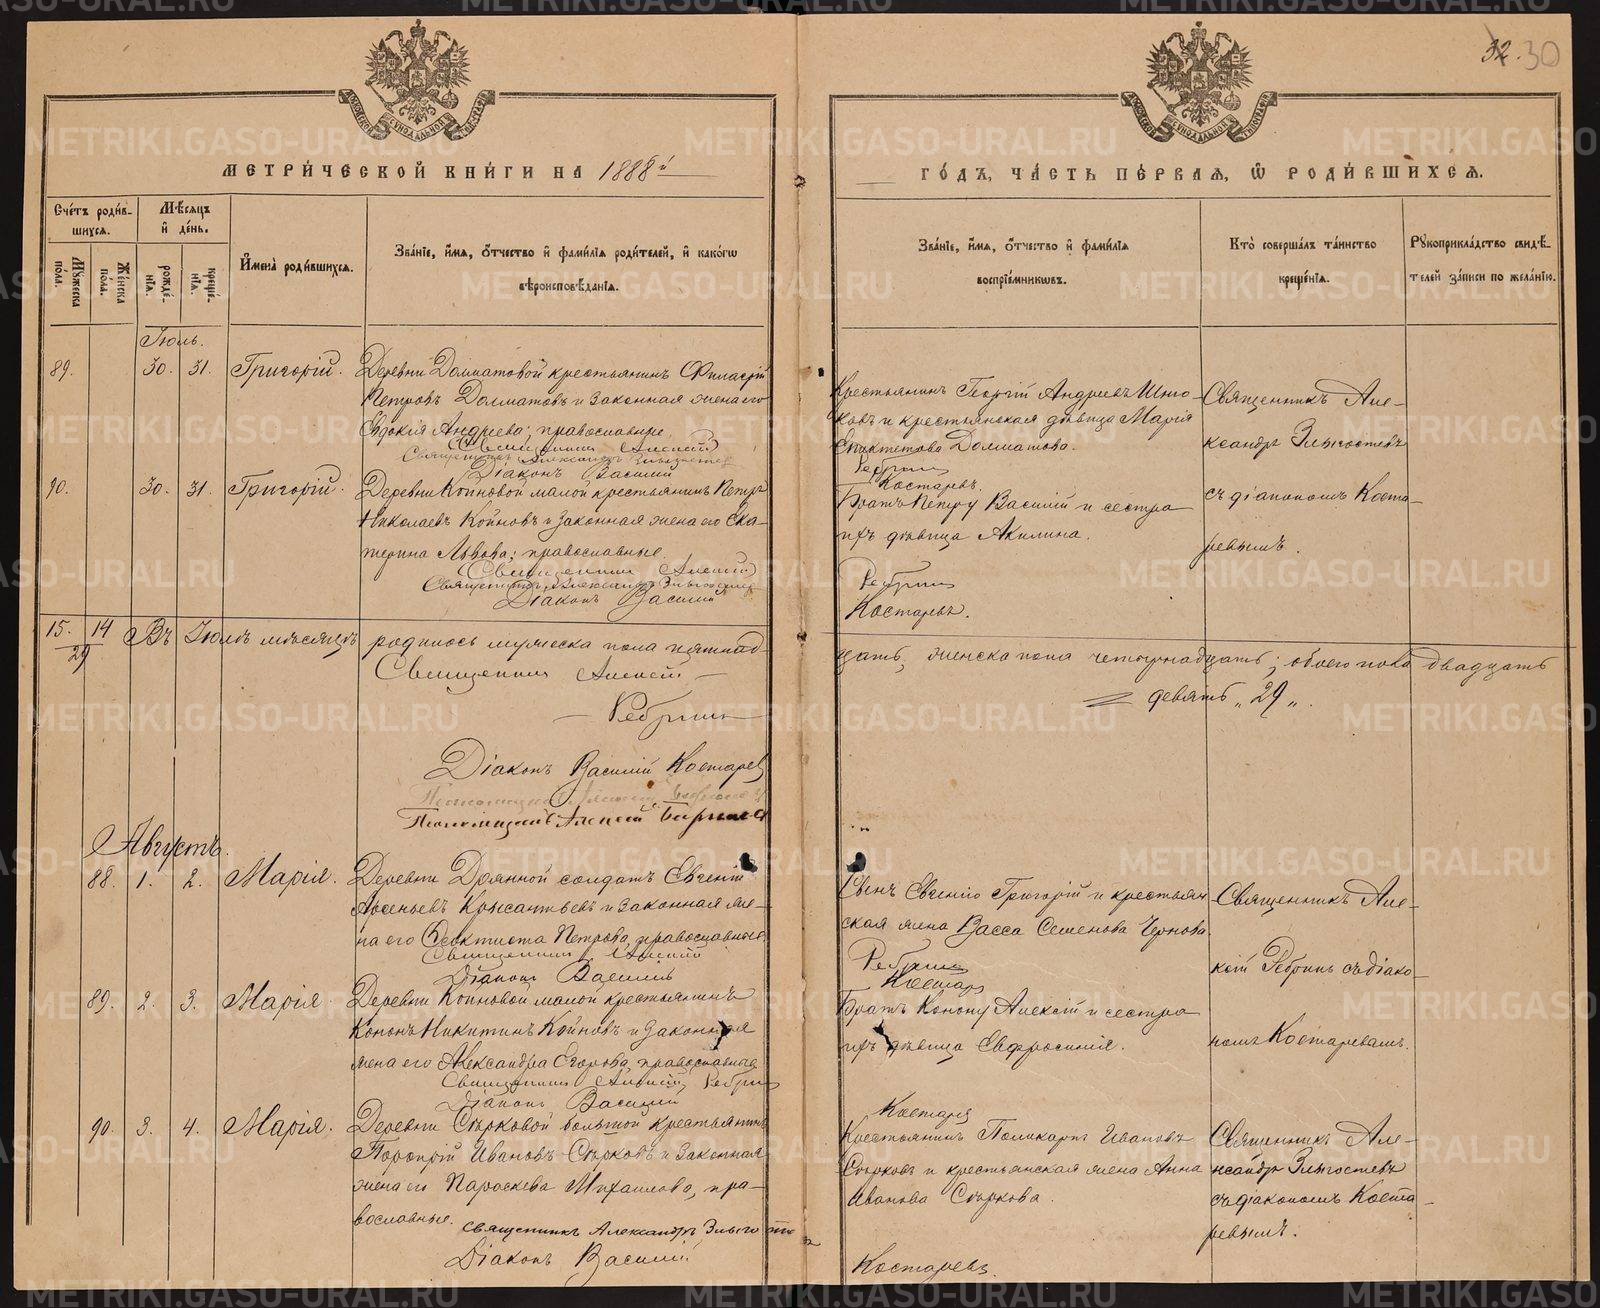 32. 30
МЕТРИ́ЧЕСКОЙ КНИ́ГИ НА 1888й
ГО́ДЪ, ЧА́СТЬ ПЕ́РВАЯ, Ѽ РОДИ́ВШИХСЯ.
Сче́тъ роди́в-
шихся.
Мѣ́сяцъ
и́ де́нь.
Му́жеска по́ла.
Же́нска по́ла.
рожде́-
нїя.
креще́-
нїя.
И́мена̀ роди́вшихся.
Зва́нїе, и́мя, о́тчество и́ фами́лїя роди́телей, и́ како́гѡ
вѣроисповѣ́данїя.
Зва́нїе, и́мя, о́тчество и́ фами́лїя
воспрїе́мникѡвъ.
Кто̀ соверша́лъ та́инство
креще́нїя.
Рꙋкоприкла́дство свидѣ́-
телей за́писи по жела́нїю.
Іюль.
89. 30. 31. Григорій.
Деревни Долматовой крестьянинъ
Петровъ Долматовъ и законная жена его
Евдокія Андреева; православные.
Священникъ Алексій
Священникъ Александръ
Діаконъ Василій
Крестьянинъ Георгій Андреевъ
ковъ и крестьянская дѣвица Марія
Епиктетова Долматова.
Ребринъ
Костаревъ.
Священникъ Але-
ксандръ Злыгостевъ
съ діакономъ Коста-
ревымъ.
90. 30. 31. Григорій.
Деревни Койновой малой крестьянинъ Петръ
Николаевъ Койновъ и законная жена его Ека-
терина Львова; православные.
Священникъ Алексій
Священникъ Александръ Злыгостевъ
Діаконъ Василій
Братъ Петру Василій и сестра
ихъ дѣвица Акилина.
Ребринъ
Костаревъ.
15. 14
29
Въ Іюлѣ мѣсяцѣ родилось мужеска пола пятнад-
цать, женска пола четырнадцать; обоего пола двадцать
девять „29„.
Священникъ Алексій
Ребринъ
Діаконъ Василій Костаревъ
Псаломщикъ Алексій
Августъ.
88. 1. 2. Марія.
Деревни Дрянной солдатъ Евгеній
Арсеньевъ Крысантьевъ и законная же-
на его Ѳеоктиста Петрова, православные.
Священникъ Алексій
Діаконъ Василій
Сынъ Евгенію Григорій и крестьян
ская жена Васса Семенова Чернова.
Ребринъ
Костар
Священникъ Але-
ксій Ребринъ съ діако-
номъ Костаревымъ.
89. 2. 3. Марія.
Деревни Койновой малой крестьянинъ
Кононъ Никитинъ Койновъ и законная
жена его Александра Егорова, православные
Священникъ Алексій Ребринъ
Діаконъ Василій
Братъ Конону Алексій и сестра
ихъ дѣвица Евфросинія.
Костарев
90. 3. 4. Марія.
Деревни Сѣрковой большой крестьянинъ
Порфирій Ивановъ Сѣрковъ и законная
жена его Параскева Михаилова, пра-
вославные.
Священникъ Александръ Злыгостев
Діаконъ Василій
Крестьянинъ Поликарпъ Ивановъ
Сѣрковъ и крестьянская жена Анна
Иванова Сѣркова.
Костаревъ.
Священникъ Але-
ксандръ Злыгостевъ
съ діакономъ Коста-
ревымъ.
METRIKI.GASO-URAL.RU